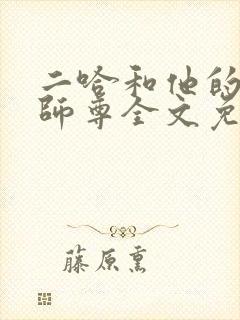 二哈和他的
師尊全文免
藤原熏